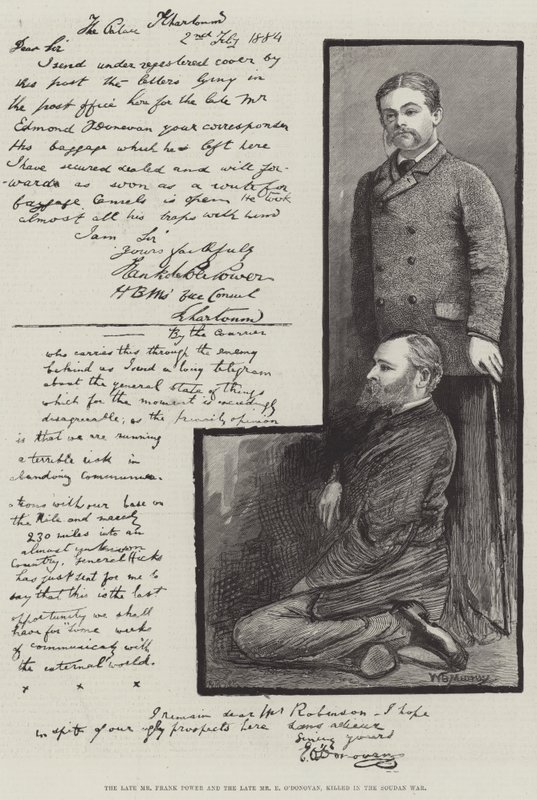 The Palace Khartoum
2nd Feby 1884
Dear Sir
I send under registered cover by
this post the letters lying in
the post office here for the late Mr
Edmond O'Donovan your correspondent
His baggage which he left here
I have secured sealed and will for-
-ward as soon as a route for
baggage Camels is open He took
almost all his traps with him
I am Sir
yours faithfully
Frank Power
HBM's Vice Consul
Khartoum
By the courier
who carries this through the enemy
behind us I send a long telegram
about the general state of things
which for the moment is exceedingly
disagreeable, as the opinion
is that we are running
a terrible risk in
abandoning communica-
-tions with our base on
the Nile and march
230 miles into an
almost unknown
Country. General Hicks
has just sent for me to
say that this is the last
opportunity we shall
have for some weeks
of communicating with
the external world.
x x x
I remain dear Mr Robinson - I hope
in spite of our ugly prospects here sans adieux
yours
E O'Donovan
THE LATE MR. FRANK POWER AND THE LATE MR. E. O'DONOVAN, KILLED IN THE SOUDAN WAR.